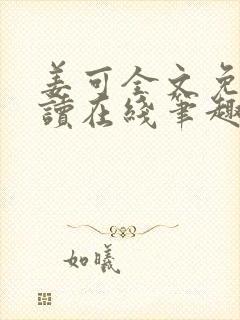 姜可全文免
读在线笔趣
如曦